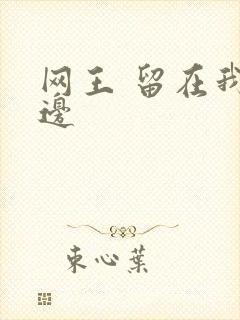 网王 留在我
邊
束心葉